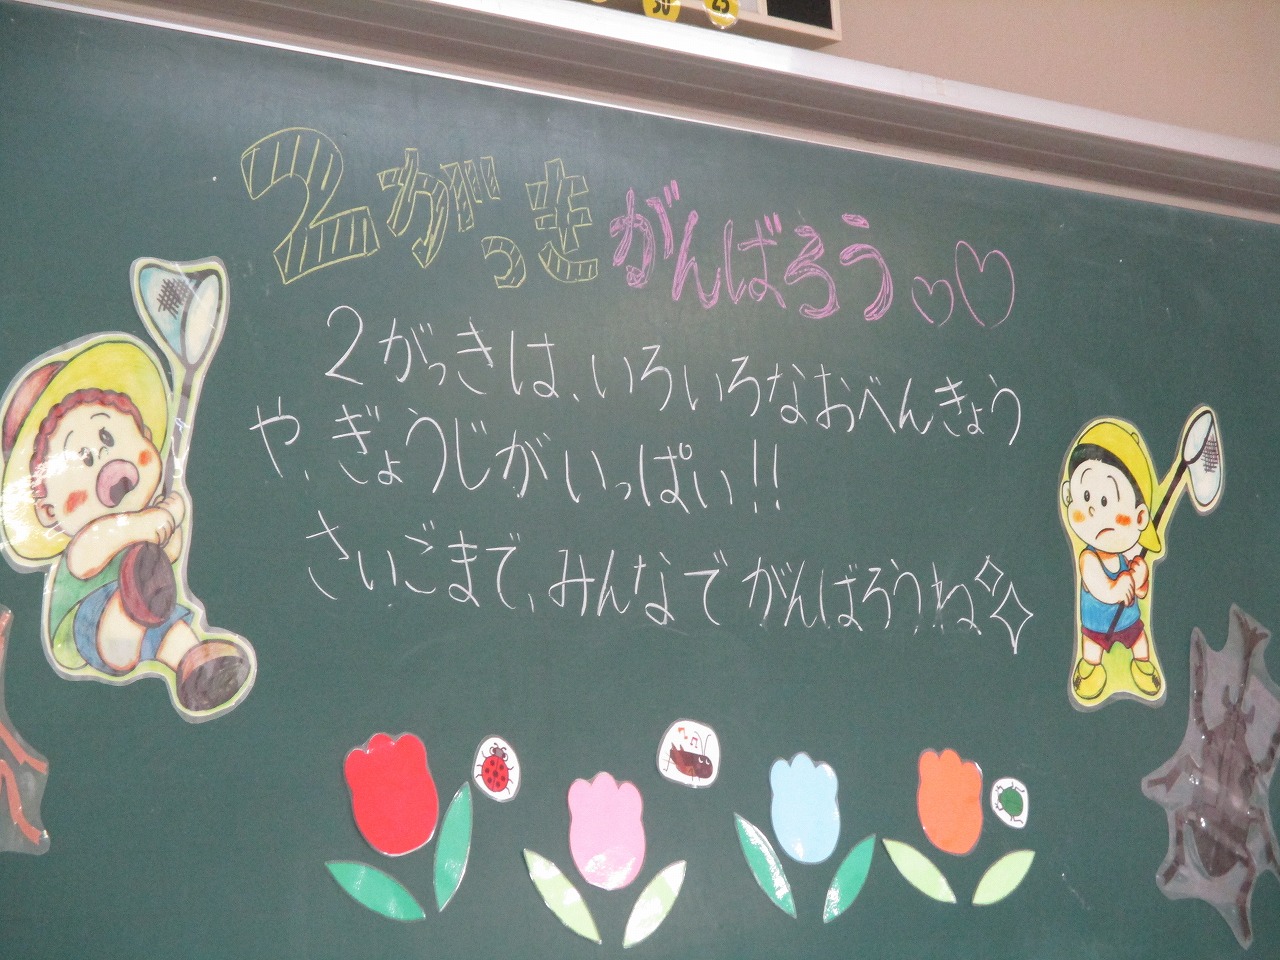 30 25
2がっき がんばろう♡♡
2がっきは、いろいろなおべんきょう
や、ぎょうじがいっぱい!!
さいごまで、みんなでがんばろうね